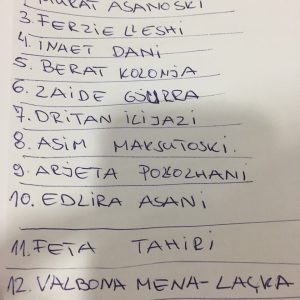 MURAT ASANOSKI
3. FERZIE LLESHI
4. INAET DANI
5. BERAT KOLONJA
6. ZAIDE
7. DRITAN ILIJAZI
8. ASIM MAKSUTOSKI.
9. ARJETA POLOZHANI
10. EDLIRA ASANI
11. FETA TAHIRI
12. VALBONA MENA-LAÇKA